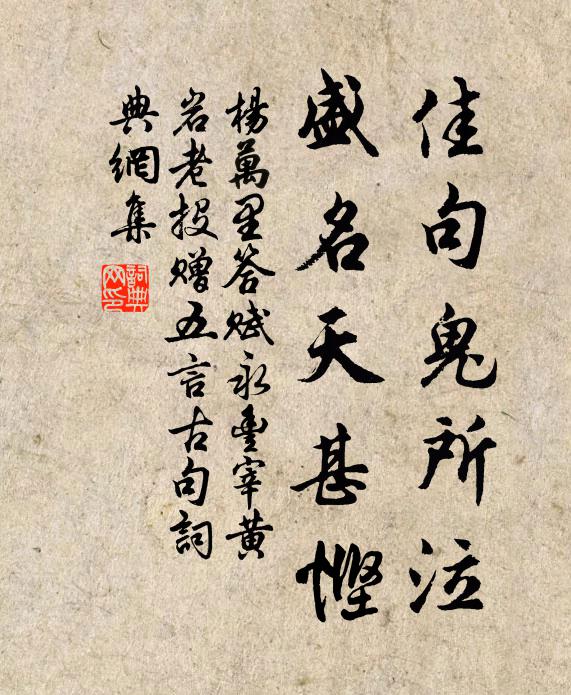 佳句鬼所泣
盛名天甚慳
楊萬里答賦永豐宰黃
岩老投贈五言古句詞
典網集
詞典
网印